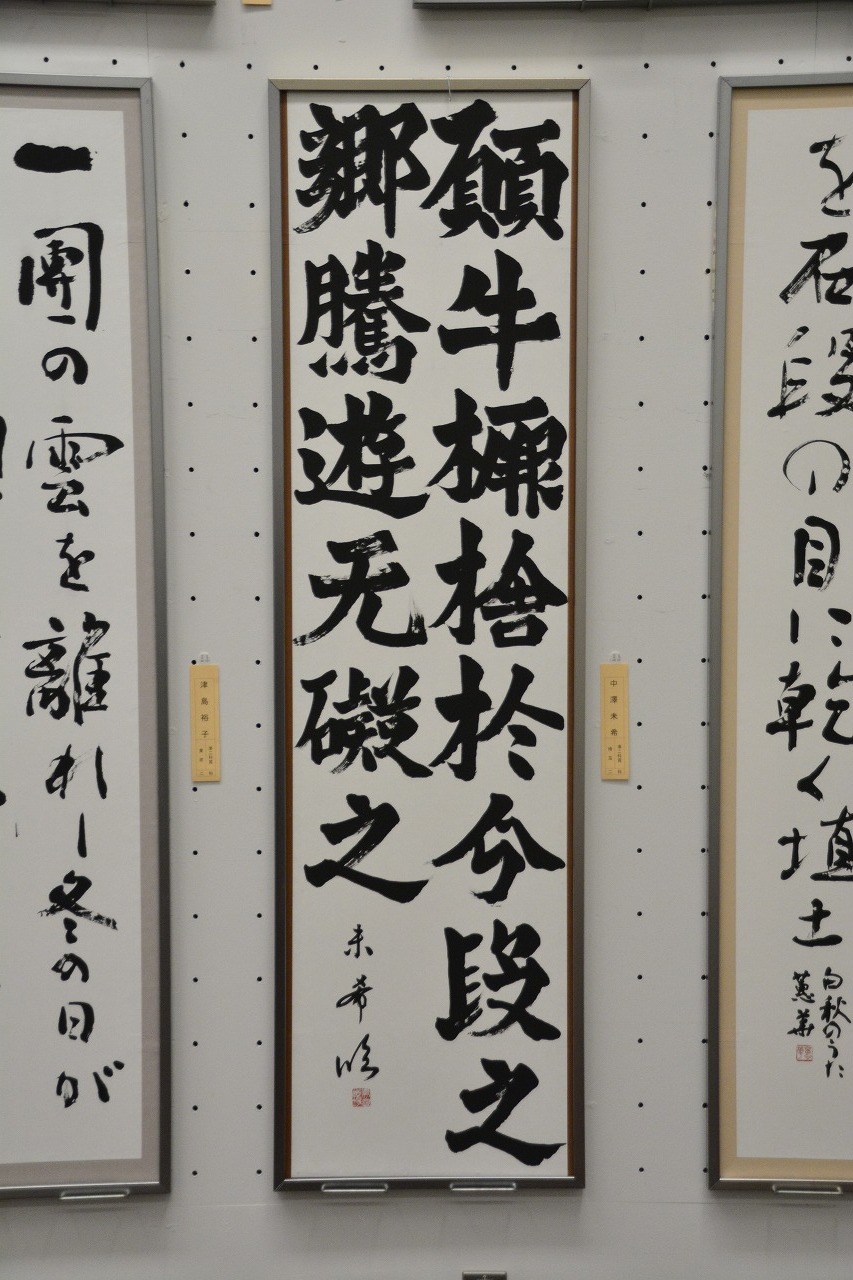 を石段の目に乾く埴土
白秋のうた
願牛橛捨於分段之
鄉騰遊无礙之
未希臨
中澤未希
津島裕子
一團の雲を離れし冬の日が